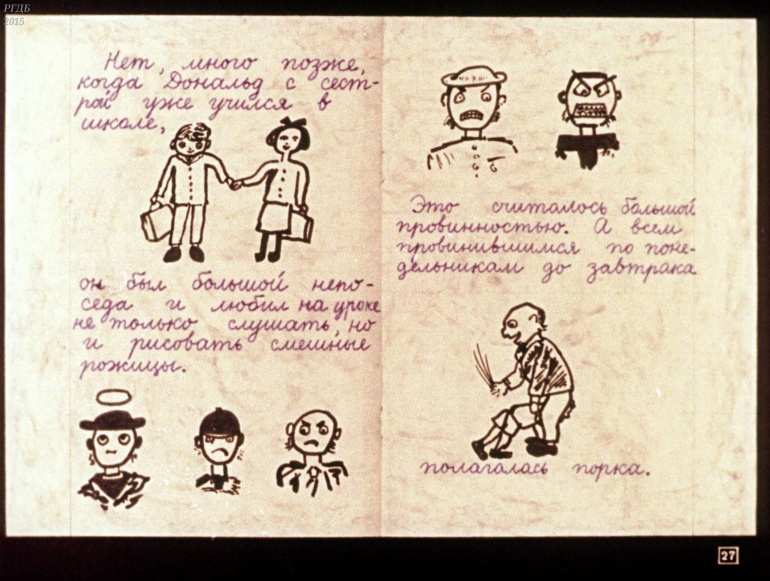 РГДБ
2015
Нет, много позже,
когда Дональд с сест-
рой уже учился в
школе,
он был большой непо-
седа и любил на уроке
не только слушать, но
и рисовать смешные
рожицы.
Это считалось большой
провинностью. А всем
провинившимся по поне-
дельникам до завтрака
полагалась порка.
27